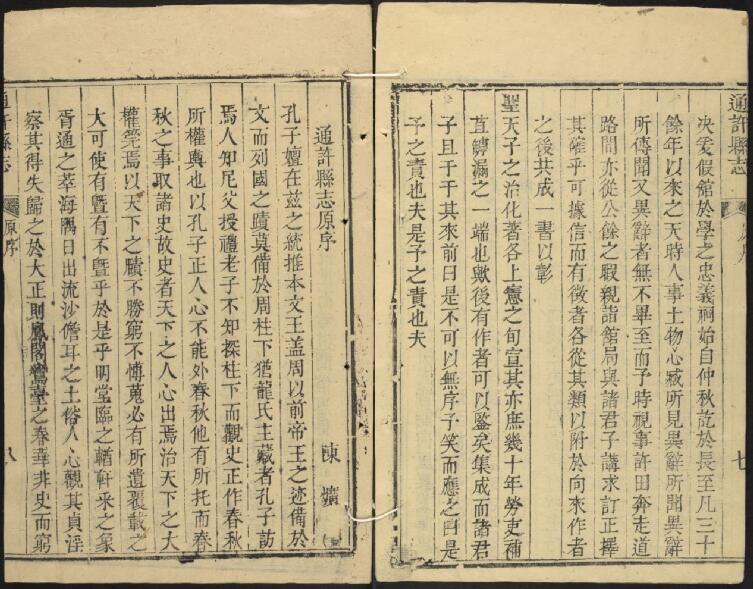 通許縣志
七
決爰假館於學之忠義祠始自仲秋訖於長至凡三十
餘年以來之天時人事土物心臧所見異辭所聞異辭
所傳聞又異辭者無不畢至而予時視事許田奔走道
路間亦從公餘之暇親詣館局與諸君子講求訂正擇
其確乎可據信而有徵者各從其類以附於向來作者
之後共成一書以彰
聖天子之治化著各上憲之旬宣其亦庶幾十年勞吏補
苴罅漏之一端也歟後有作者可以鑒矣集成而諸君
子且于于其來前曰是不可以無序予笑而應之曰是
予之責也夫是予之責也夫
通許縣志原序
陳爌
孔子嬗在兹之統推本文王盖周以前帝王之迹備於
文而列國之蹟莫備於周柱下猶龍氏主藏者孔子訪
焉人知尼父授禮老子不知探柱下而觀史正作春秋
所權輿也以孔子正人心不能外春秋他有所托而春
秋之事取諸史故史者天下之人心出焉治天下之大
權筦焉以天下之賾不勝窮不慱蒐必有所遺覆載之
大可使有曁有不曁乎於是乎明堂臨之輶軒采之象
胥通之萃海隅日出流沙儋耳之土俗人心觀其貞淫
察其得失歸之於大正則鳳閣鸞臺之春華非史而窮
通許縣志
原序
八